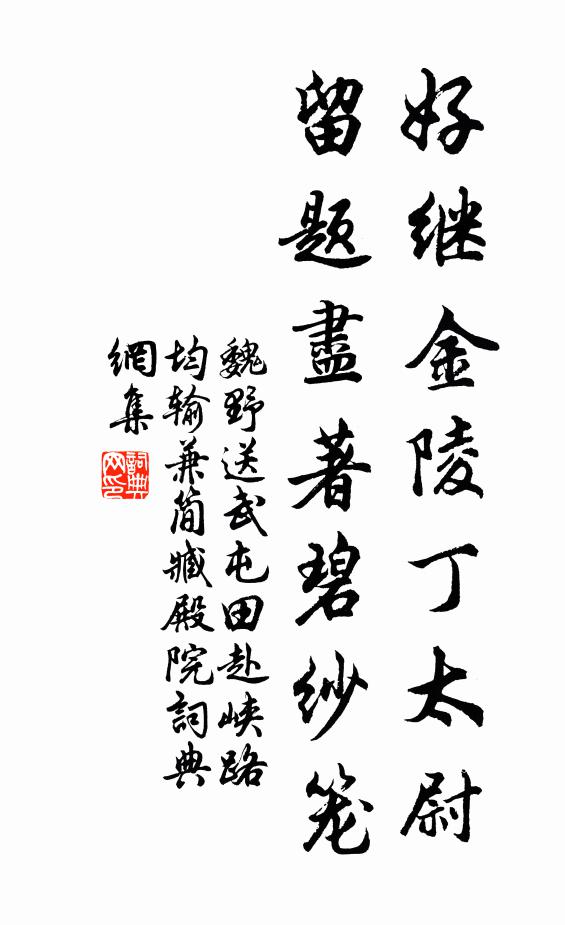 好继金陵丁太尉
留题盡著碧纱笼
魏野送武屯田赴峡路
均输兼简臧殿院詞典
網集
詞典網印